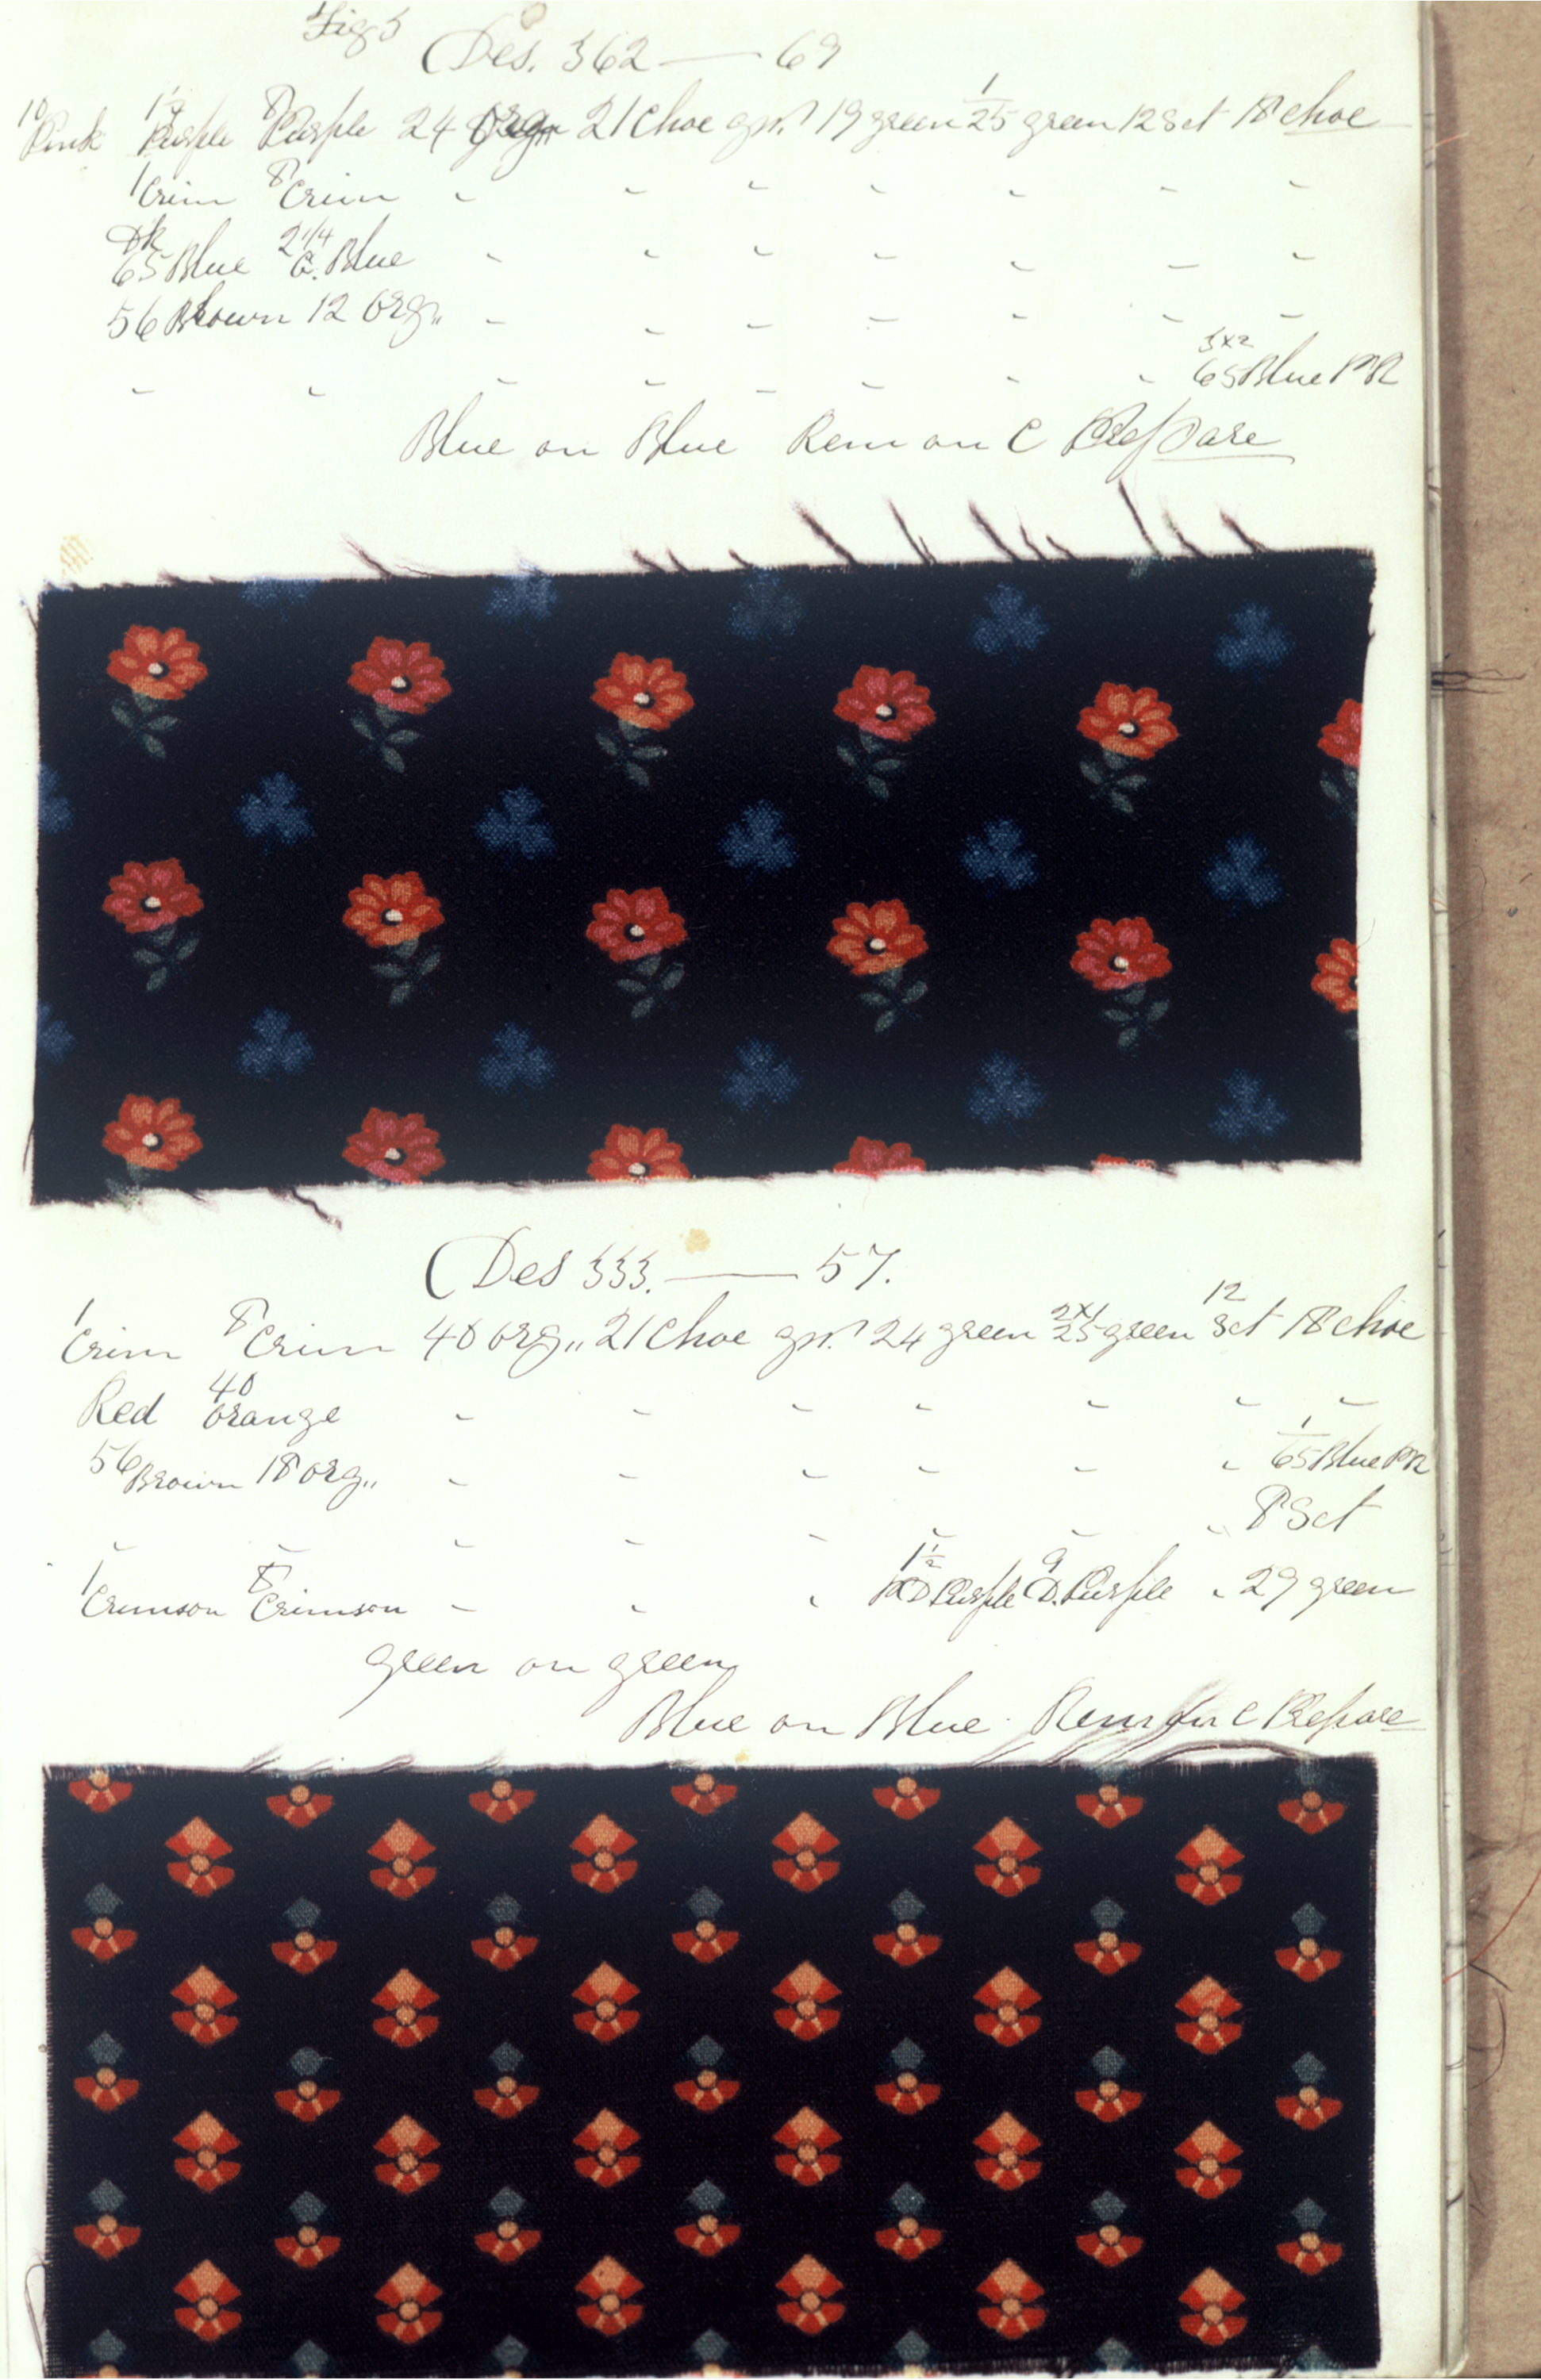 Fig 5
Des. 362 — 69
10 Pink 1½ Purple 8 Purple 24 Org,, 21 Choc gr. 19 green 1/25 green 12 Sct 18 choc
1 Crim 8 Crim " " " " " " "
Dk 65 Blue 2 1/4 C. Blue " " " " " " "
56 Brown 12 Org,, " " " " " " "
" " " " " " " " 3x2 65 Blue PR
Blue on Blue Rem on C Prepare
Des 333. — 57.
1 Crim 8 Crim 40 Org,, 21 Choc gr. 24 green 2x1 25 green 12 Sct 18 choc
Red 40 Orange " " " " " " "
56 Brown 18 Org,, " " " " " " 1/65 Blue PR
" " " " " " " " 8 Sct
1 Crimson 8 Crimson " " " 1½ Purple 9 D. Purple " 29 green
green on green
Blue on Blue. Rem for C Prepare